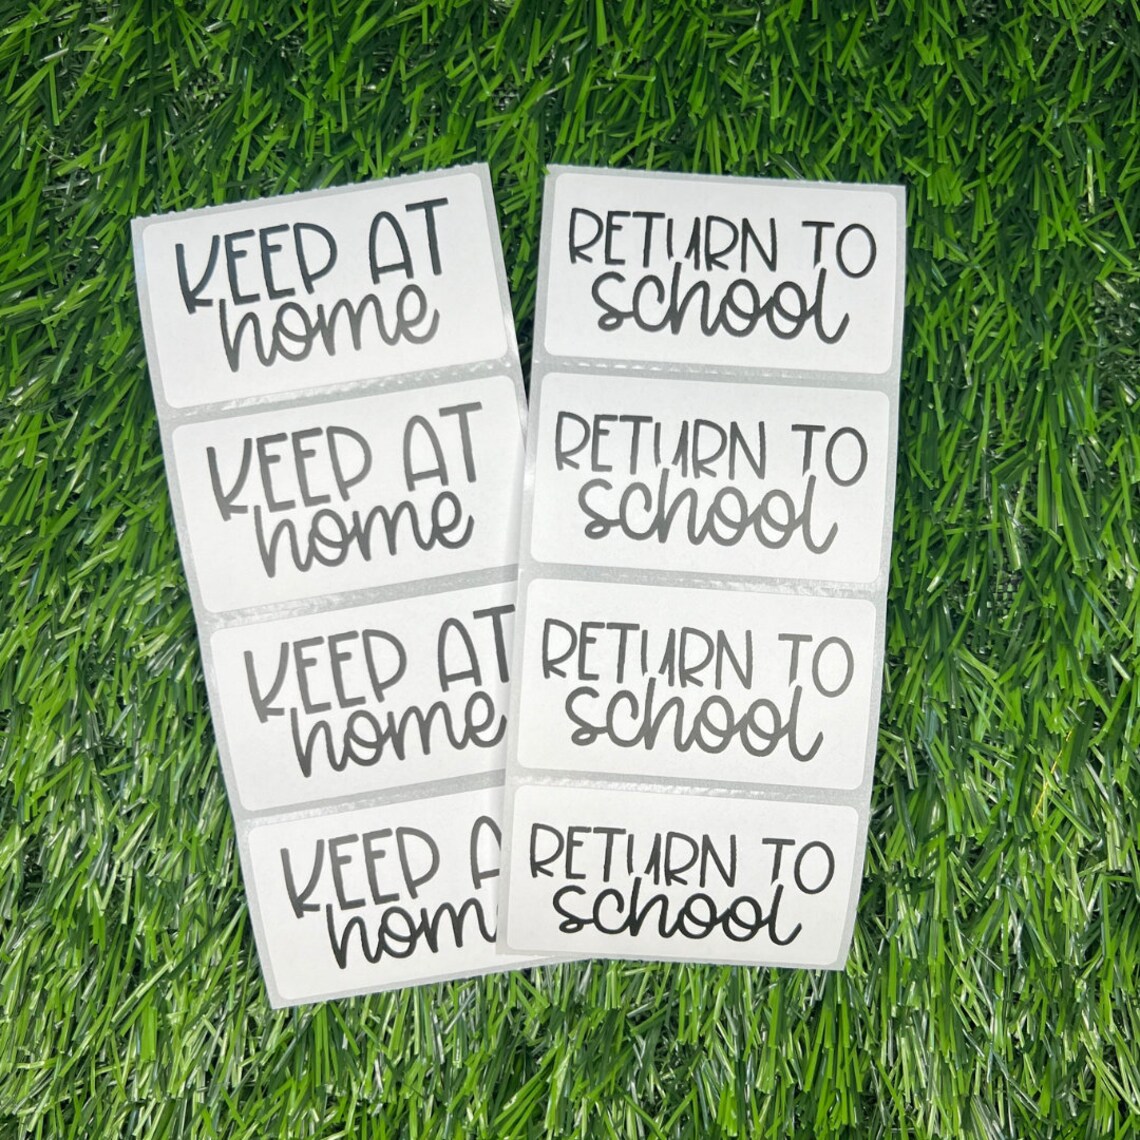 KEEP AT
home
KEEP AT
home
KEEP AT
home
KEEP A
hom
RETURN TO
school
RETURN TO
school
RETURN TO
school
RETURN TO
school